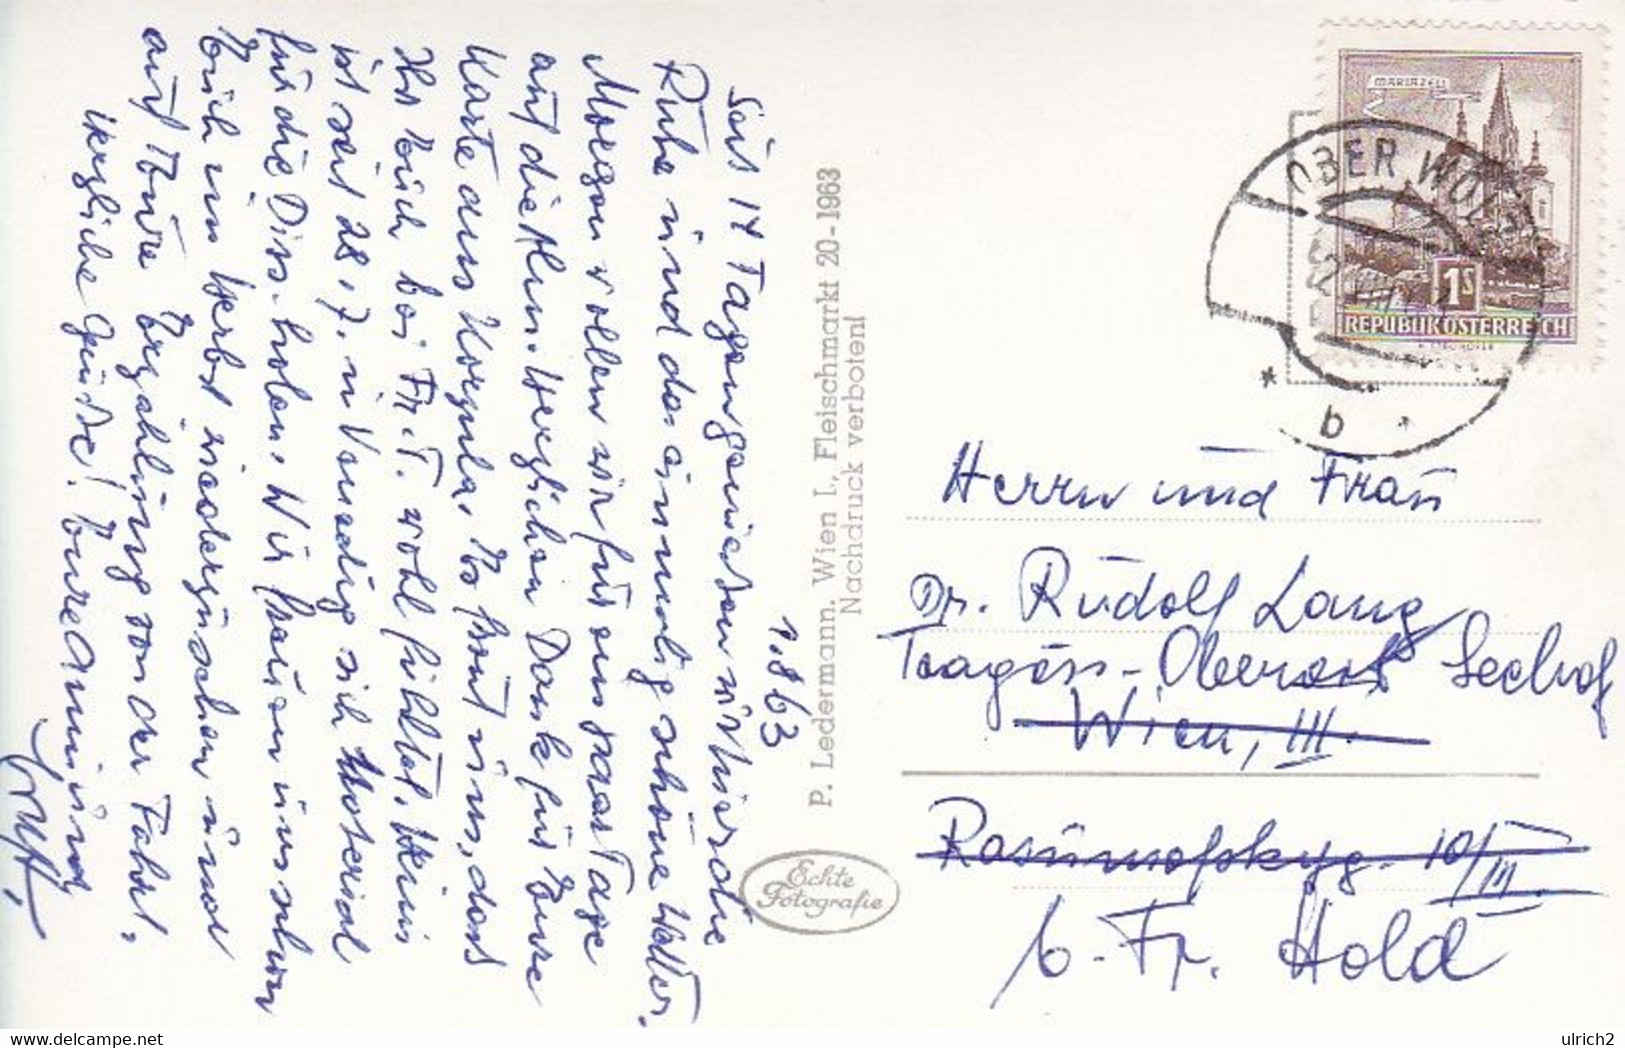 1.8.63
Seit 14 Tagen genießen wir hier die
Ruhe und das einmalig schöne Wetter.
Morgen wollen wir für ein paar Tage
auf die Alm. Herzlichen Dank für Eure
Karte aus Korčula. Es freut uns, dass
Ihr Euch bei Fr. T. wohl fühltet. Heini
ist seit 28.7. in Venedig sich Material
für die Diss. holen. Wir freuen uns schon
Euch im Herbst wiederzusehen und
auf Eure Erzählung von der Fahrt.
Herzliche Grüße! Eure Anni und
P. Ledermann. Wien I., Fleischmarkt 20-1963
Nachdruck verboten!
Echte
Fotografie
MARIAZELL
1S
REPUBLIK ÖSTERREICH
OBER WÖLZ
b
Herrn und Frau
Dr. Rudolf Lang
Tragöss-Oberort Seehof
Wien, III.
Rasumofskyg. 10/III
b. Fr. Hold
ulrich2